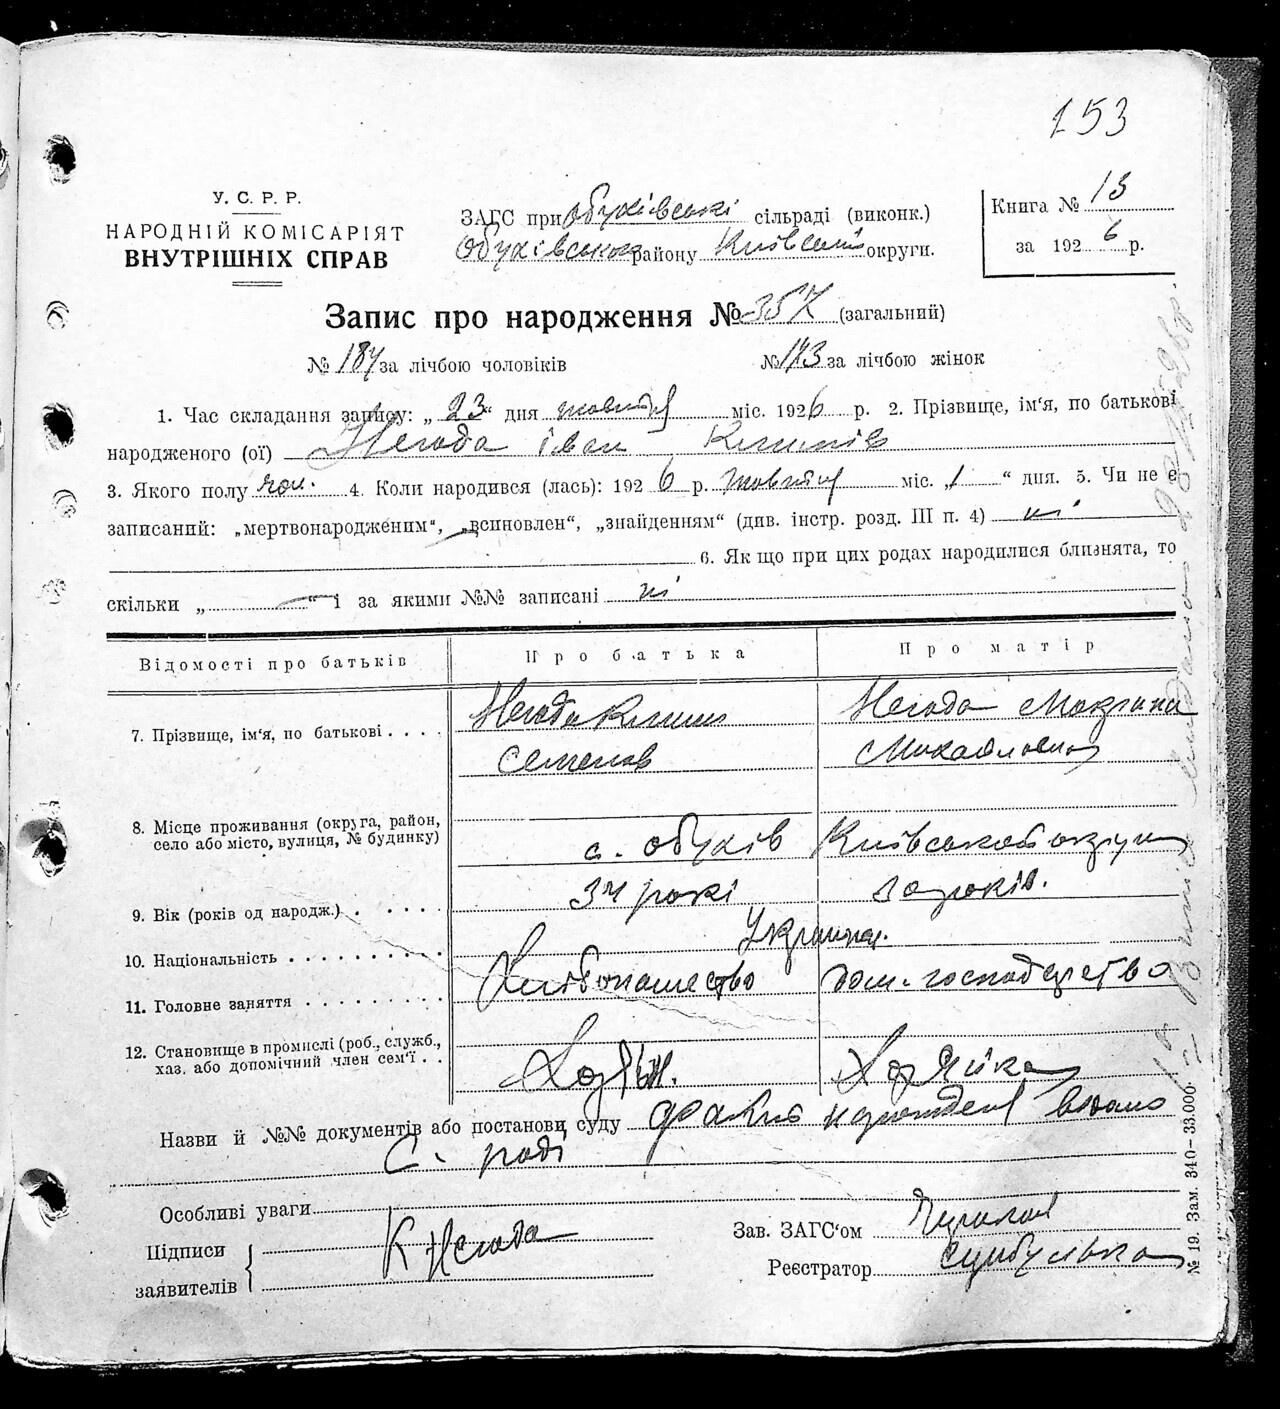 153
У. С. Р. Р.
НАРОДНІЙ КОМІСАРІЯТ
ВНУТРІШНІХ СПРАВ
ЗАГС при Обухівські сільраді (виконк.)
Обухівського району Київської округи.
Книга № 13
за 1926 р.
Запис про народження № 357 (загальний)
№ 184 за лічбою чоловіків № 173 за лічбою жінок
1. Час складання запису: „ 23 “ дня жовтня міс. 1926 р. 2. Прізвище, ім'я, по батькові
народженого (ої) Негода Іван Климів
3. Якого полу чол. 4. Коли народився (лась): 1926 р. жовтня міс. „ 1 “ дня. 5. Чи не є
записаний: „мертвонародженим“, „всиновлен“, „знайденням“ (див. інстр. розд. III п. 4) ні
6. Як що при цих родах народилися близнята, то
скільки „ — “ і за якими №№ записані ні
Відомості про батьків Про батька Про матір
7. Прізвище, ім'я, по батькові . . . . Негода Клим Негода Мокрина
Семенов Михайловна
8. Місце проживання (округа, район,
село або місто, вулиця, № будинку) с. Обухів Київської округи
9. Вік (років од народж.) . . . . . 34 рокі 30 років.
10. Національність . . . . . . . . . . Українці.
11. Головне заняття . . . . . . . . . Хлібопашество дом. господарство
12. Становище в промислі (роб., служб.,
хаз. або допомічний член сем'ї . . Хозяїн. Хозяйка
Назви й №№ документів або постанови суду факт народження відомо
С. раді
Особливі уваги
Підписи
заявителів
К Негода
Зав. ЗАГС'ом
Реєстратор Цибулька
№ 19. Зам. 340–33.000